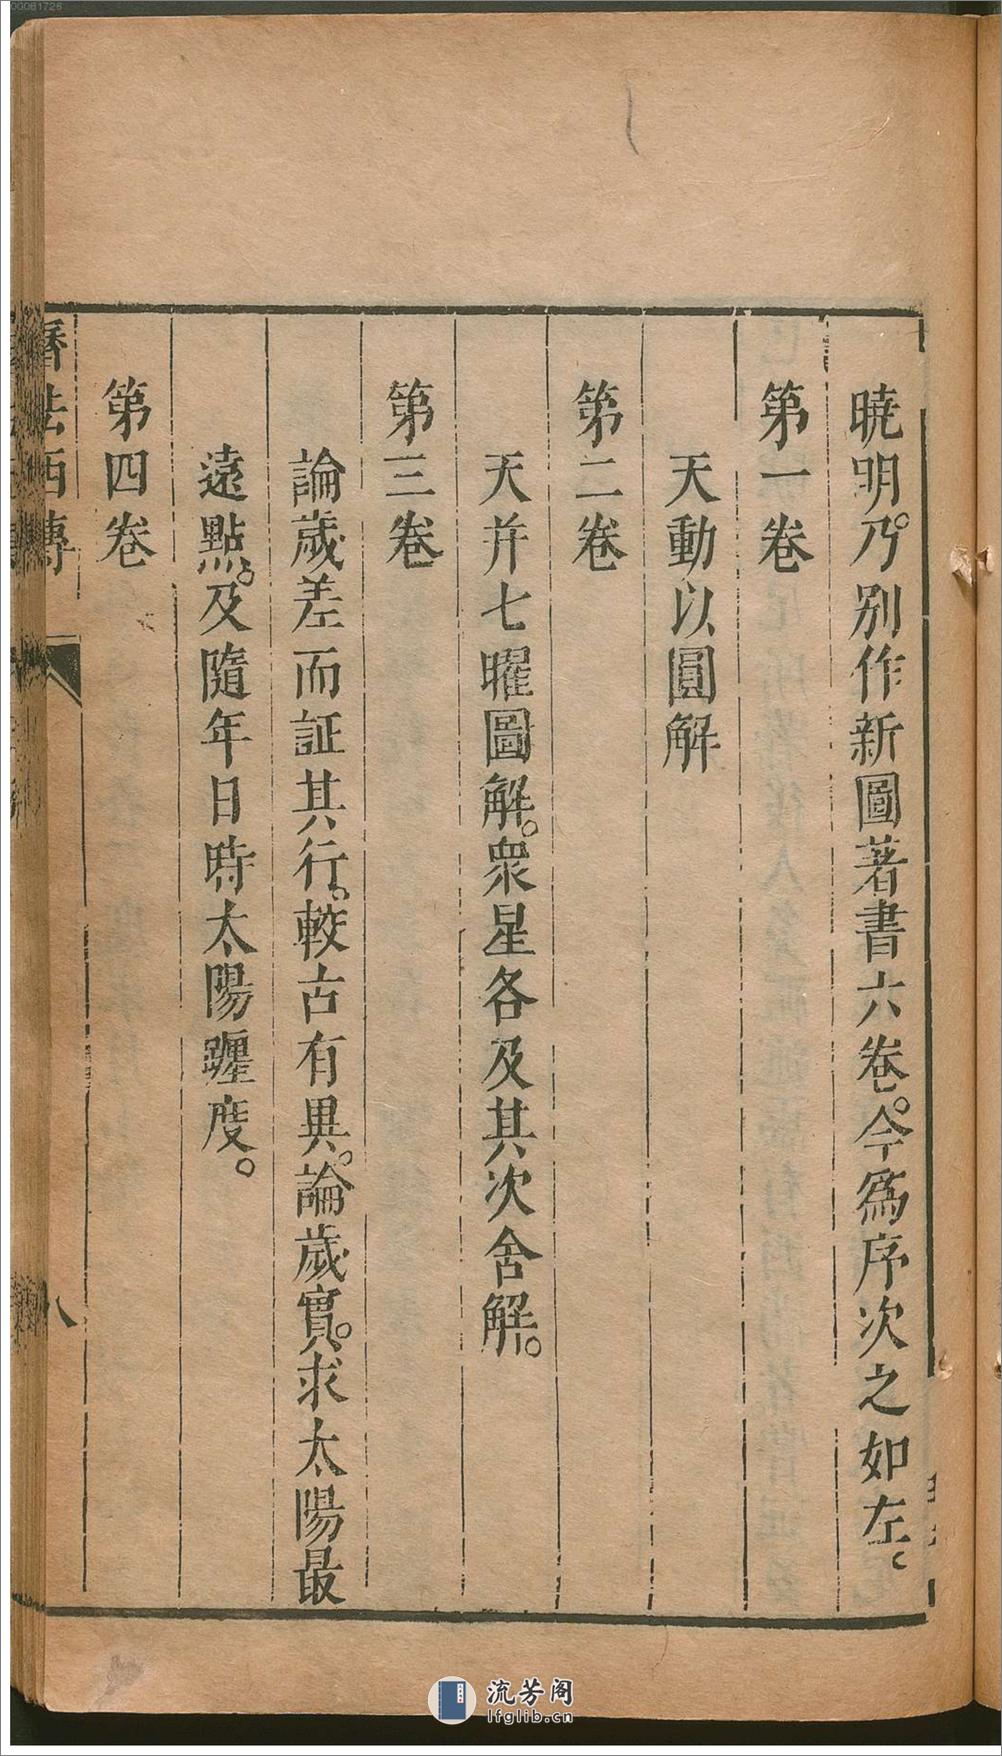 曉明。乃別作新圖著書六卷。今爲序次之如左。
第一卷
天動以圓解
第二卷
天并七曜圖解。衆星各及其次舍解。
第三卷
論歲差而証其行。較古有異。論歲實。求太陽最
遠點。及隨年日時太陽躔度。
第四卷
曆法西傳
八
流芳阁
lfglib.cn